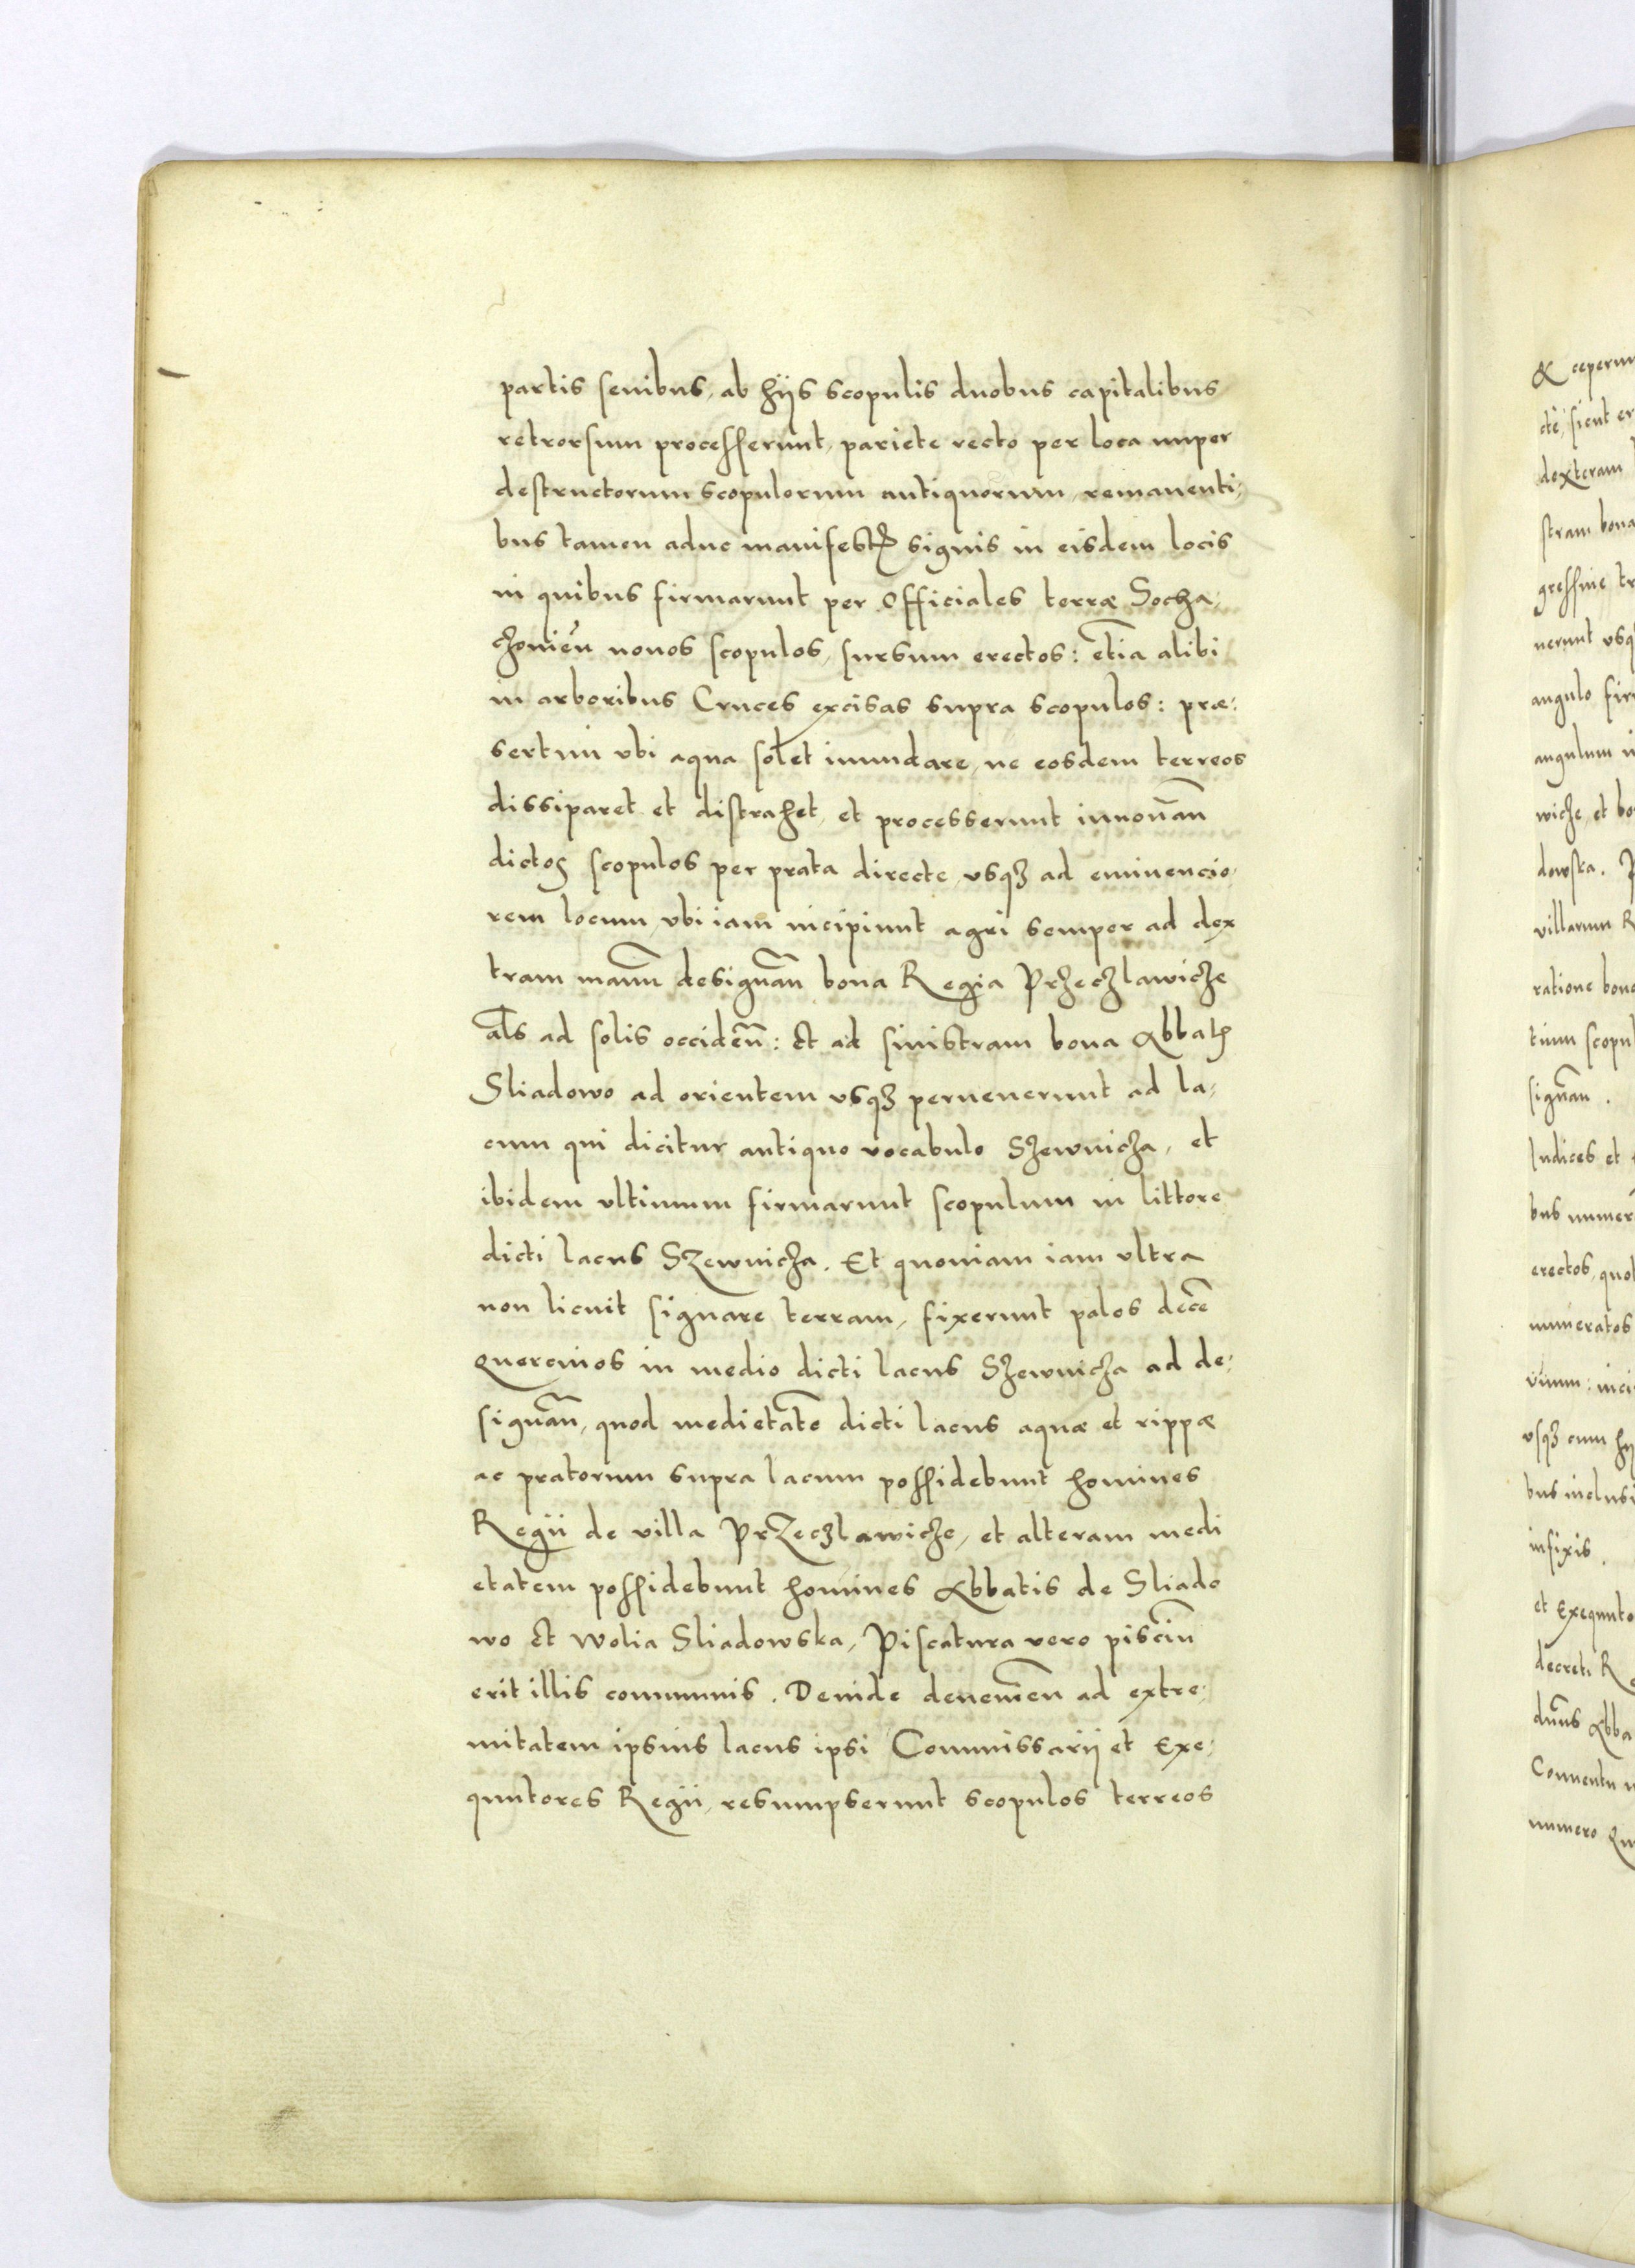 partis senibus, ab hijs scopulis duobus capitalibus
retrorsum processerunt, pariete recto per loca nuper
destructorum scopulorum antiquorum, remanenti,
bus tamen aduc manifest signis in eisdem locis
in quibus firmarunt per Officiales terræ Socha,
czouień nouos scopulos, sursum erectos: etiā alibi
in arboribus Cruces excisas supra scopulos: præ:
sertim vbi aqua solet inundare, ne eosdem terreos
dissiparet et distrahet, et processerunt innouān
dictos scopulos per prata directe, vsqȝ ad eminencio,
rem locum, vbi iam incipiunt agri semper ad dex
tram manū designān bona Regia Przeczlawicze
als ad solis occidēn: Et ad sinistram bona Abbat
Sliadowo ad orientem vsqȝ peruenerunt ad la,
cum qui dicitur antiquo vocabulo Szewnicza, et
ibidem vltimum firmarunt scopulum in littore
dicti lacus Szewnicza. Et quoniam iam vltra
non licuit signare terram, fixerunt palos decē
quercinos in medio dicti lacus Szewnicza ad de,
signān, quod medietatē dicti lacus aquæ et rippæ
ac pratorum supra lacum possidebunt homines
Regii de villa Przeczlawicze, et alteram medi
etatem possidebunt homines Abbatis de Sliado
wo Et Wolia Sliadowska, Piscatura vero pisciū
erit illis communis. Deinde deueniēn ad extre,
mitatem ipsius lacus ipsi Commissarij et Exe,
quutores Regii, resumpserunt scopulos terreos
& ceperun
ctè, sicut er
dexteram
stram bona
gressiue tr
nerunt vsq
angulo fir
angulum i
wicze, et bo
dowska. P
villarum R
ratione bono
tium scopul
signān.
Iudices et
bus numer
erectos, quot
numeratos
vnum: inci
vsqȝ cum hij
bus inclusi
infixis.
et Exequuto
decreti Re
dn̄us Abba
Conuentu
numero Qu